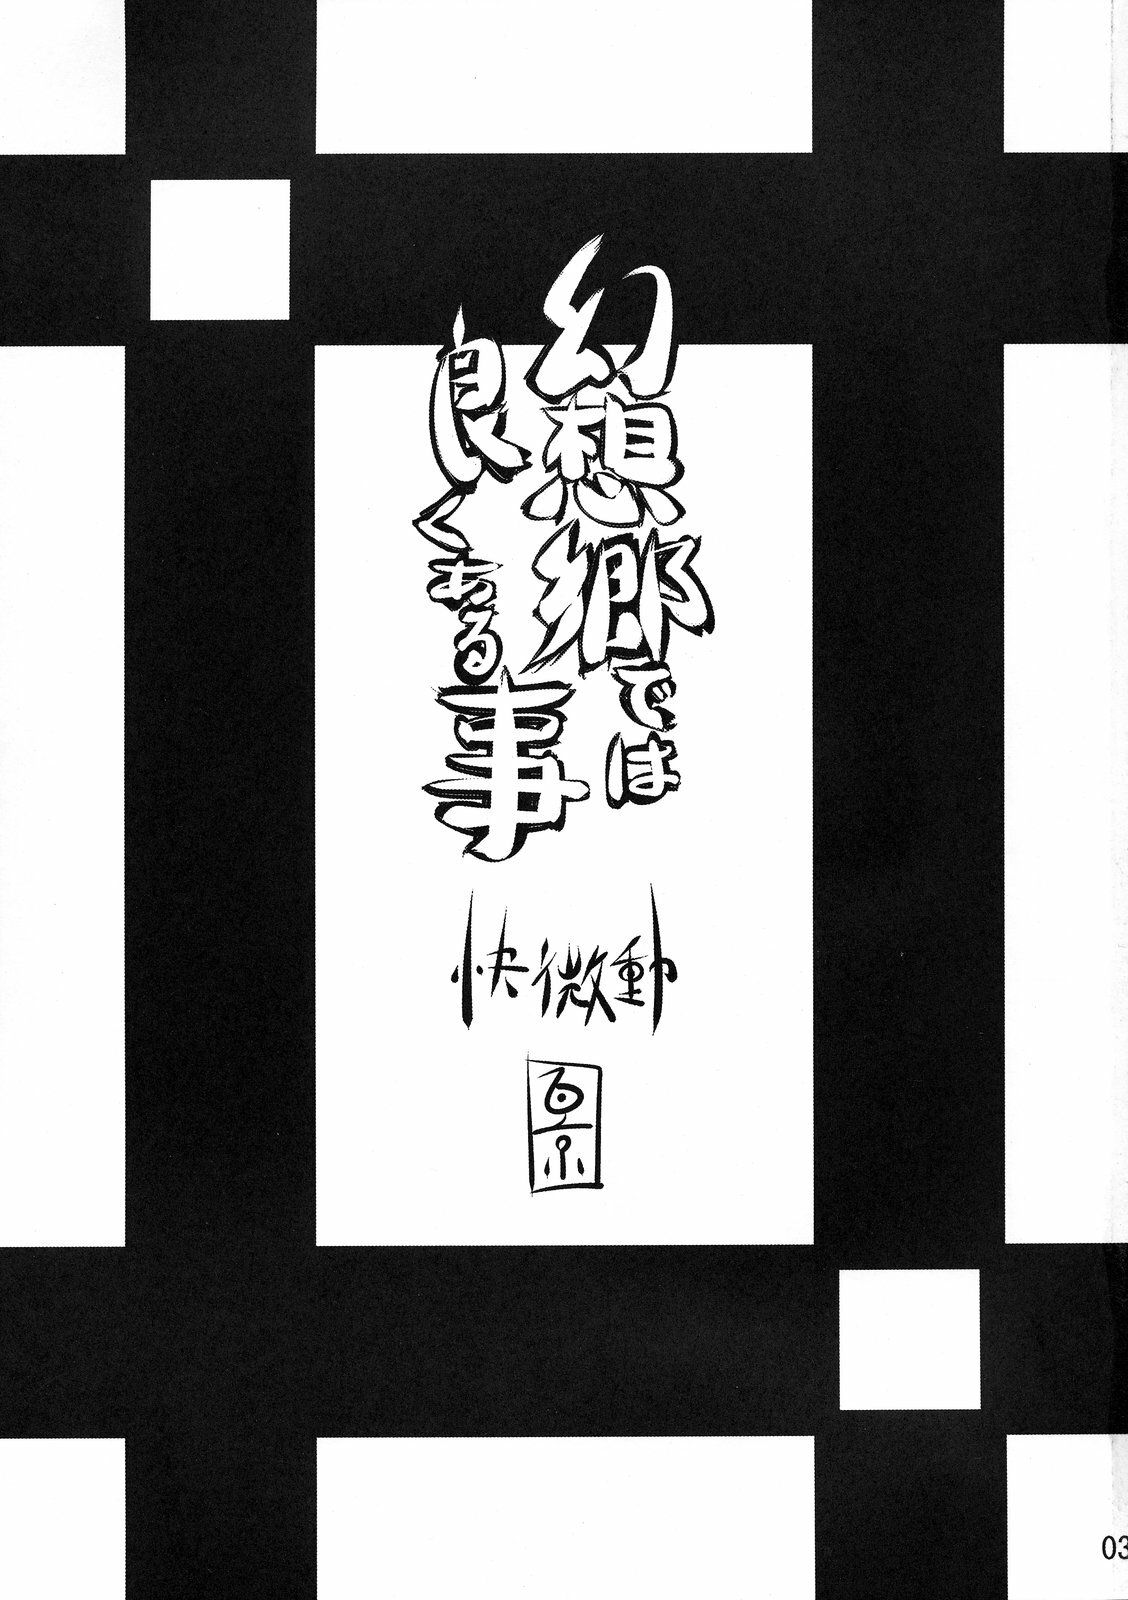 幻想郷では
良くある事
快微動
03